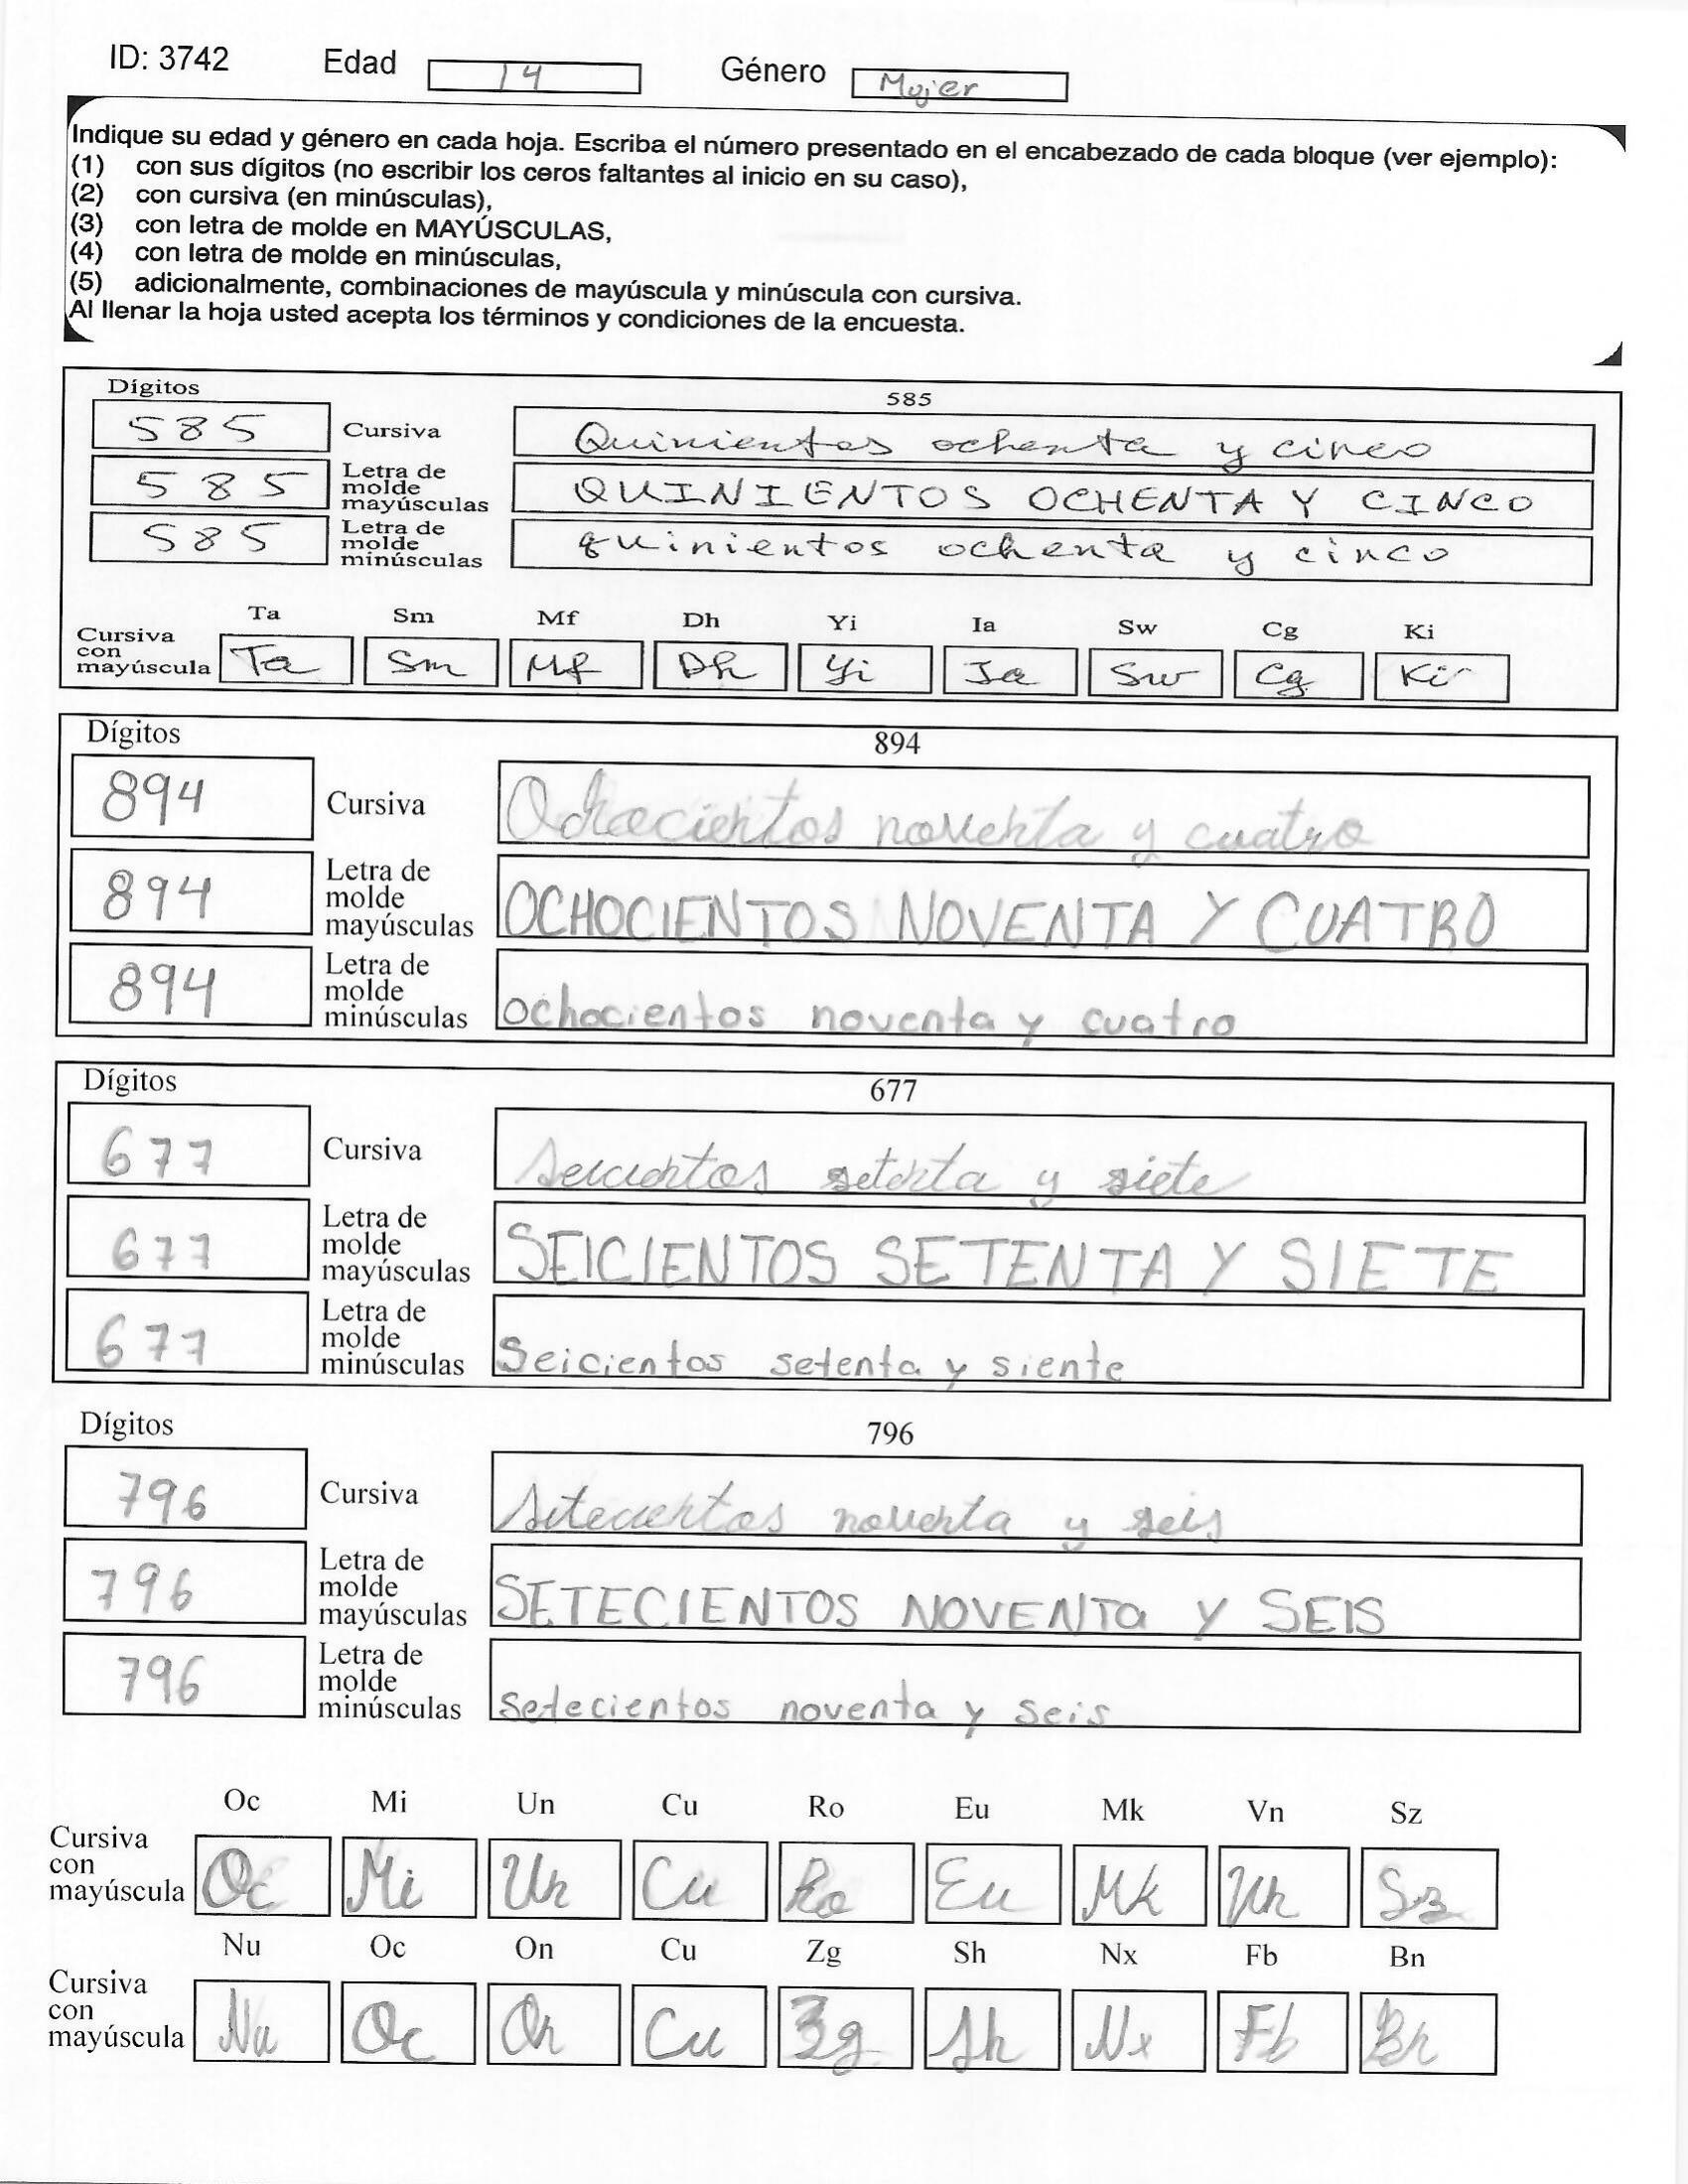 ID: 3742 Edad 14 Género Mujer
Indique su edad y género en cada hoja. Escriba el número presentado en el encabezado de cada bloque (ver ejemplo):
(1) con sus dígitos (no escribir los ceros faltantes al inicio en su caso),
(2) con cursiva (en minúsculas),
(3) con letra de molde en MAYÚSCULAS,
(4) con letra de molde en minúsculas,
(5) adicionalmente, combinaciones de mayúscula y minúscula con cursiva.
Al llenar la hoja usted acepta los términos y condiciones de la encuesta.
Dígitos 585
585 Cursiva Quinientos ochenta y cinco
585 Letra de molde mayúsculas QUINIENTOS OCHENTA Y CINCO
585 Letra de molde minúsculas quinientos ochenta y cinco
Ta Sm Mf Dh Yi Ia Sw Cg Ki
Cursiva con mayúscula Ta Sm Mf Dh Yi Ia Sw Cg Ki
Dígitos 894
894 Cursiva Ochocientos noventa y cuatro
894 Letra de molde mayúsculas OCHOCIENTOS NOVENTA Y CUATRO
894 Letra de molde minúsculas ochocientos noventa y cuatro
Dígitos 677
677 Cursiva Seicientos setenta y siete
677 Letra de molde mayúsculas SEICIENTOS SETENTA Y SIETE
677 Letra de molde minúsculas Seicientos setenta y siente
Dígitos 796
796 Cursiva Setecientos noventa y seis
796 Letra de molde mayúsculas SETECIENTOS NOVENTa Y SEIS
796 Letra de molde minúsculas Setecientos noventa y seis
Oc Mi Un Cu Ro Eu Mk Vn Sz
Cursiva con mayúscula Oc Mi Un Cu Ro Eu Mk Vn Sz
Nu Oc On Cu Zg Sh Nx Fb Bn
Cursiva con mayúscula Nu Oc On Cu Zg Sh Nx Fb Bn